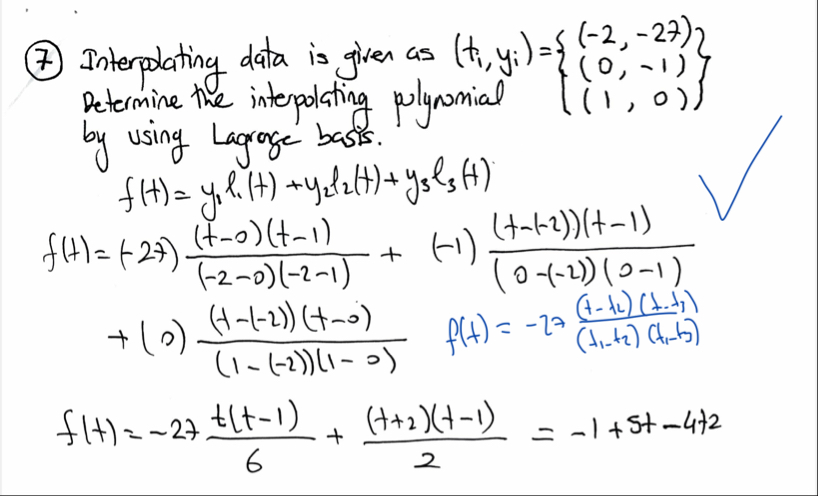 ⑦ Interpolating data is given as (tᵢ, yᵢ) = { (-2, -27), (0, -1), (1, 0) }
Determine the interpolating polynomial
by using Lagrange basis.
f(t) = y₁l₁(t) + y₂l₂(t) + y₃l₃(t)
f(t) = (-27) (t-0)(t-1) / (-2-0)(-2-1) + (-1) (t-(-2))(t-1) / (0-(-2))(0-1)
+ (0) (t-(-2))(t-0) / (1-(-2))(1-0)
f(t) = -27 (t-t₂)(t-t₃) / (t₁-t₂)(t₁-t₃)
f(t) = -27 t(t-1) / 6 + (t+2)(t-1) / 2 = -1 + 5t - 4t2